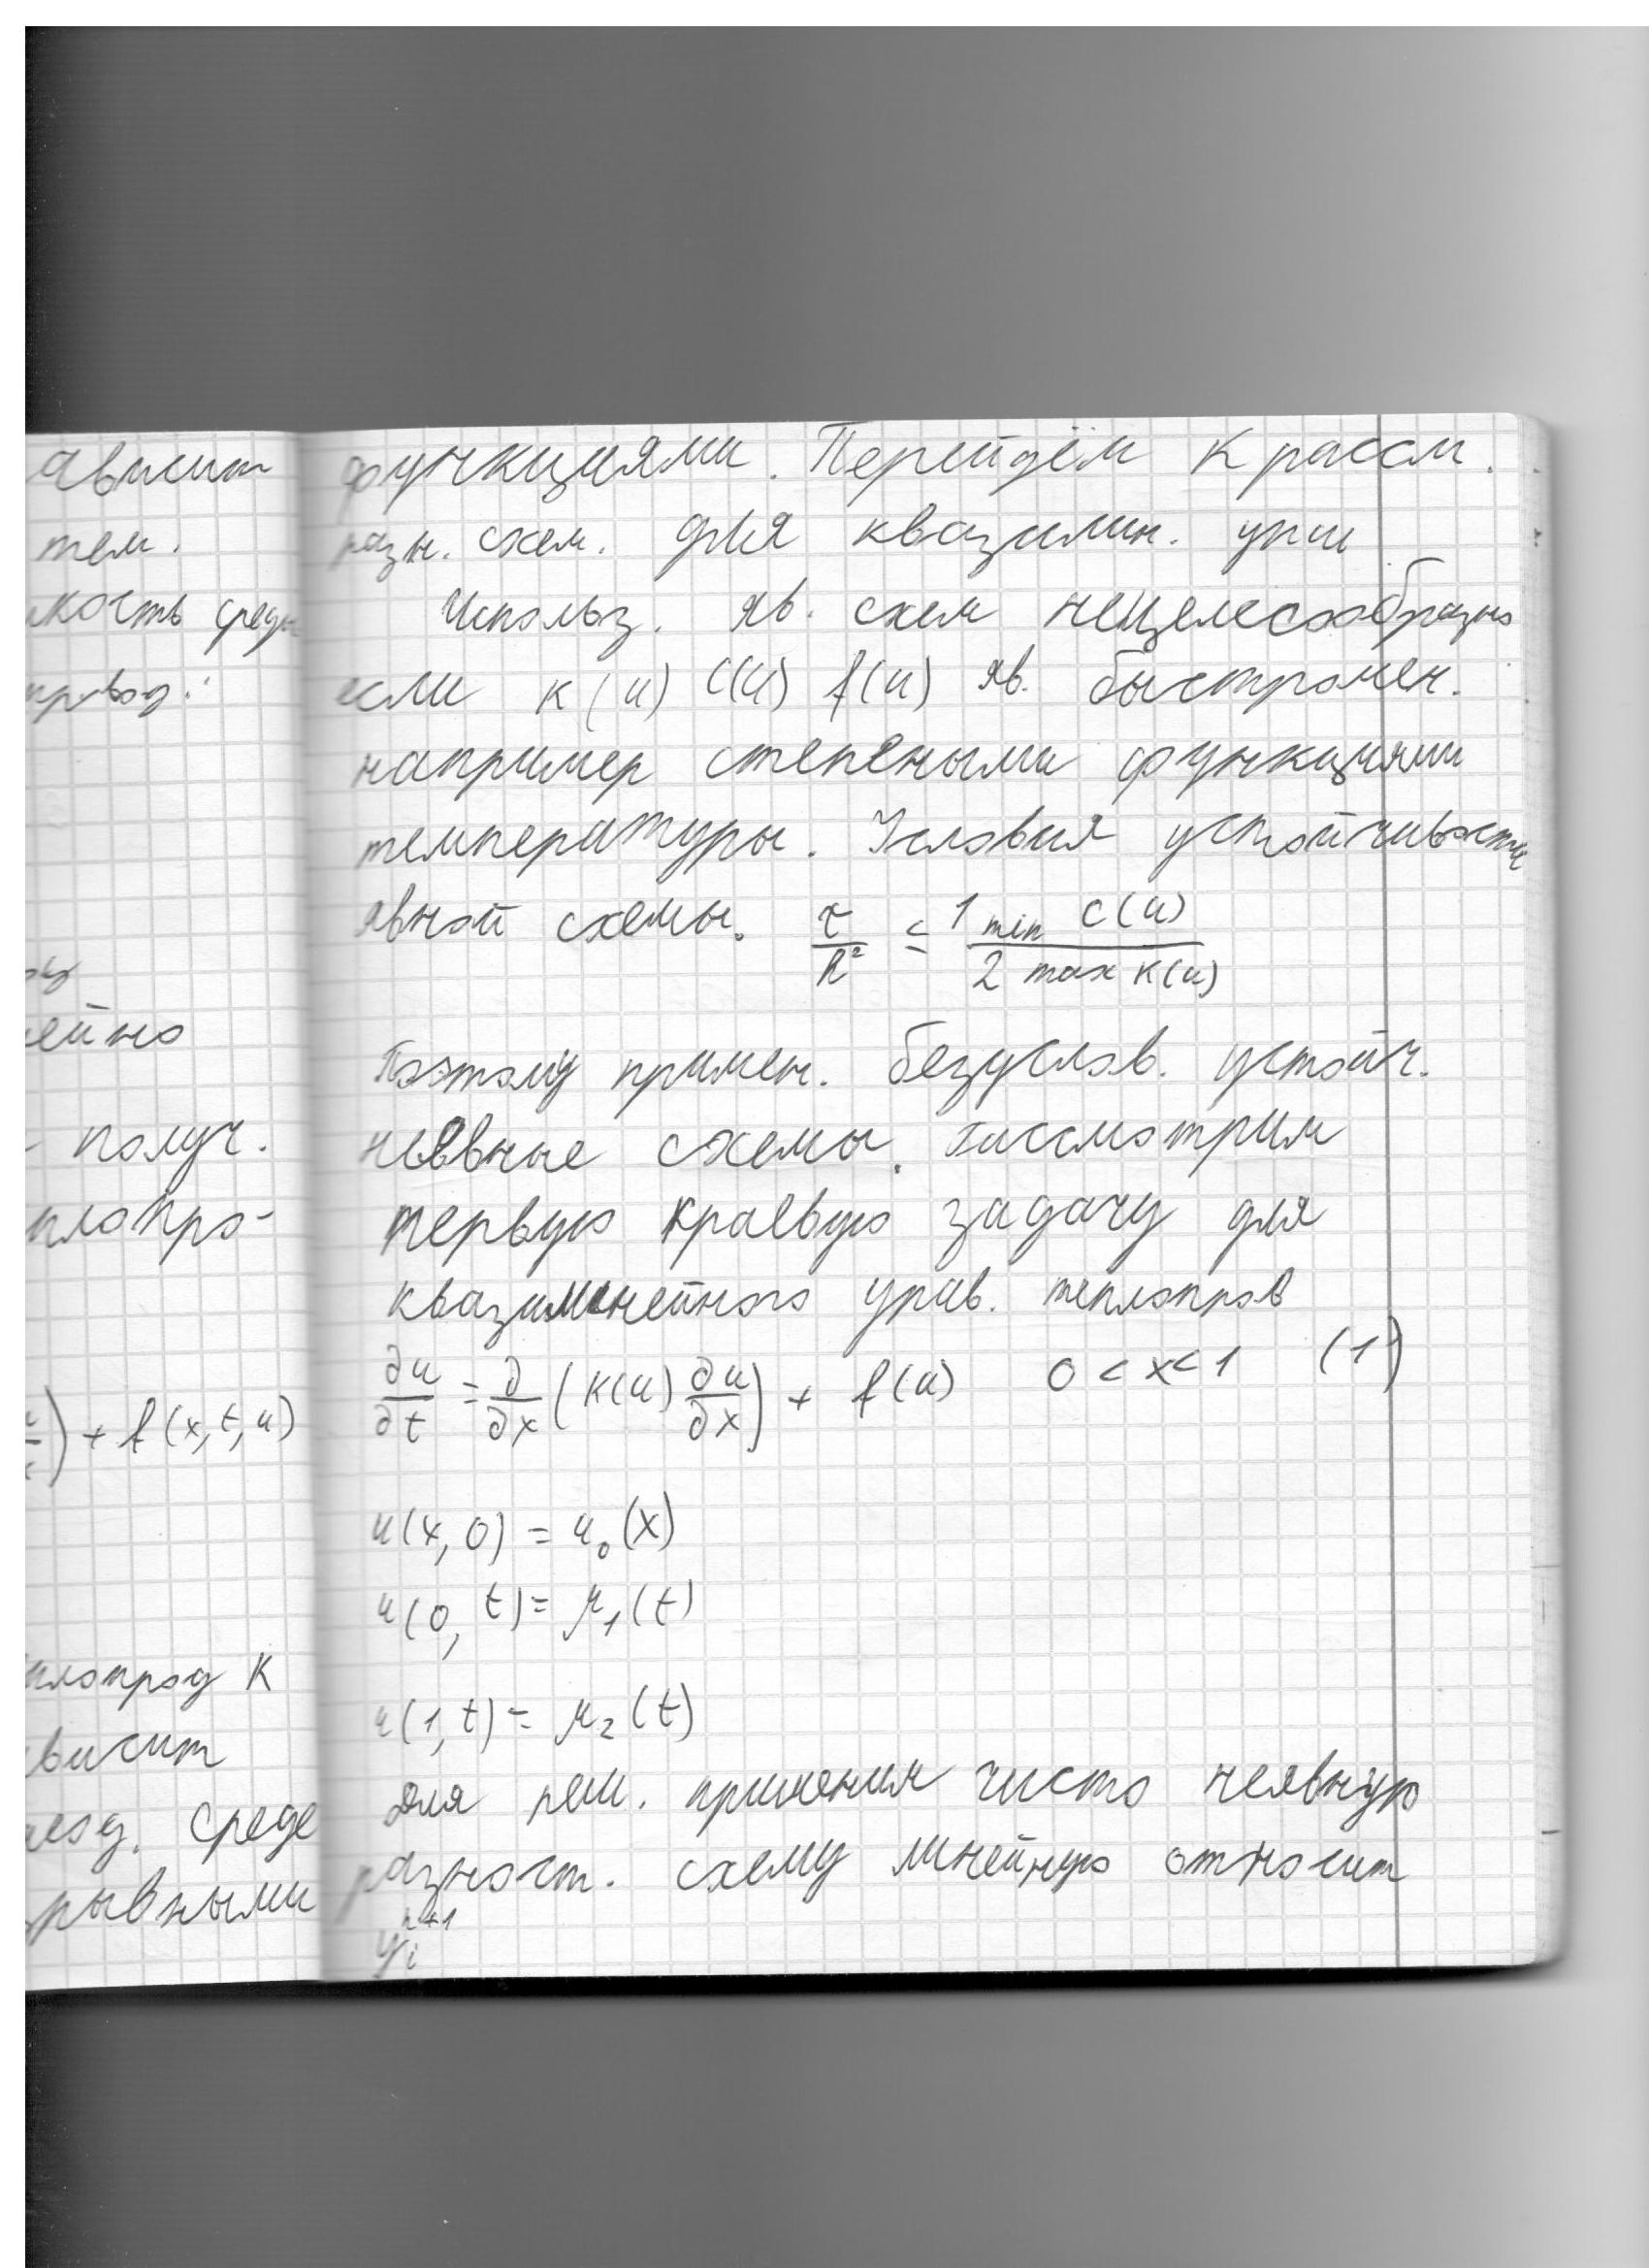 ависит
тем.
кость среды
ейно
получ.
плопро-
) + f(x, t, u)
лопрод К
висит
среде
рывными
функциями. Перейдём к рассм.
разн. схем. для квазилин. урш
Использ. яв. схем нецелесообразно
если к(u) С(u) f(u) яв. быстромен.
например степеными функциями
температуры. Условия устойчивости
явной схемы. τ/h² ≤ 1 min c(u) / 2 max к(u)
Поэтому примен. безуслов. устойч.
неявные схемы. Рассмотрим
первую краевую задачу для
квазилинейного урав. теплопров
∂u/∂t = ∂/∂x (K(u) ∂u/∂x) + f(u) 0 < x < 1 (1)
u(x, 0) = u₀(x)
u(0, t) = μ₁(t)
u(1, t) = μ₂(t)
для реш. применим чисто неявную
разност. схему линейную относит
yᵢⁿ⁺¹